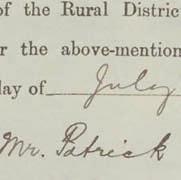 of the Rural Distric
r the above-mention
day of July
Mr. Patrick